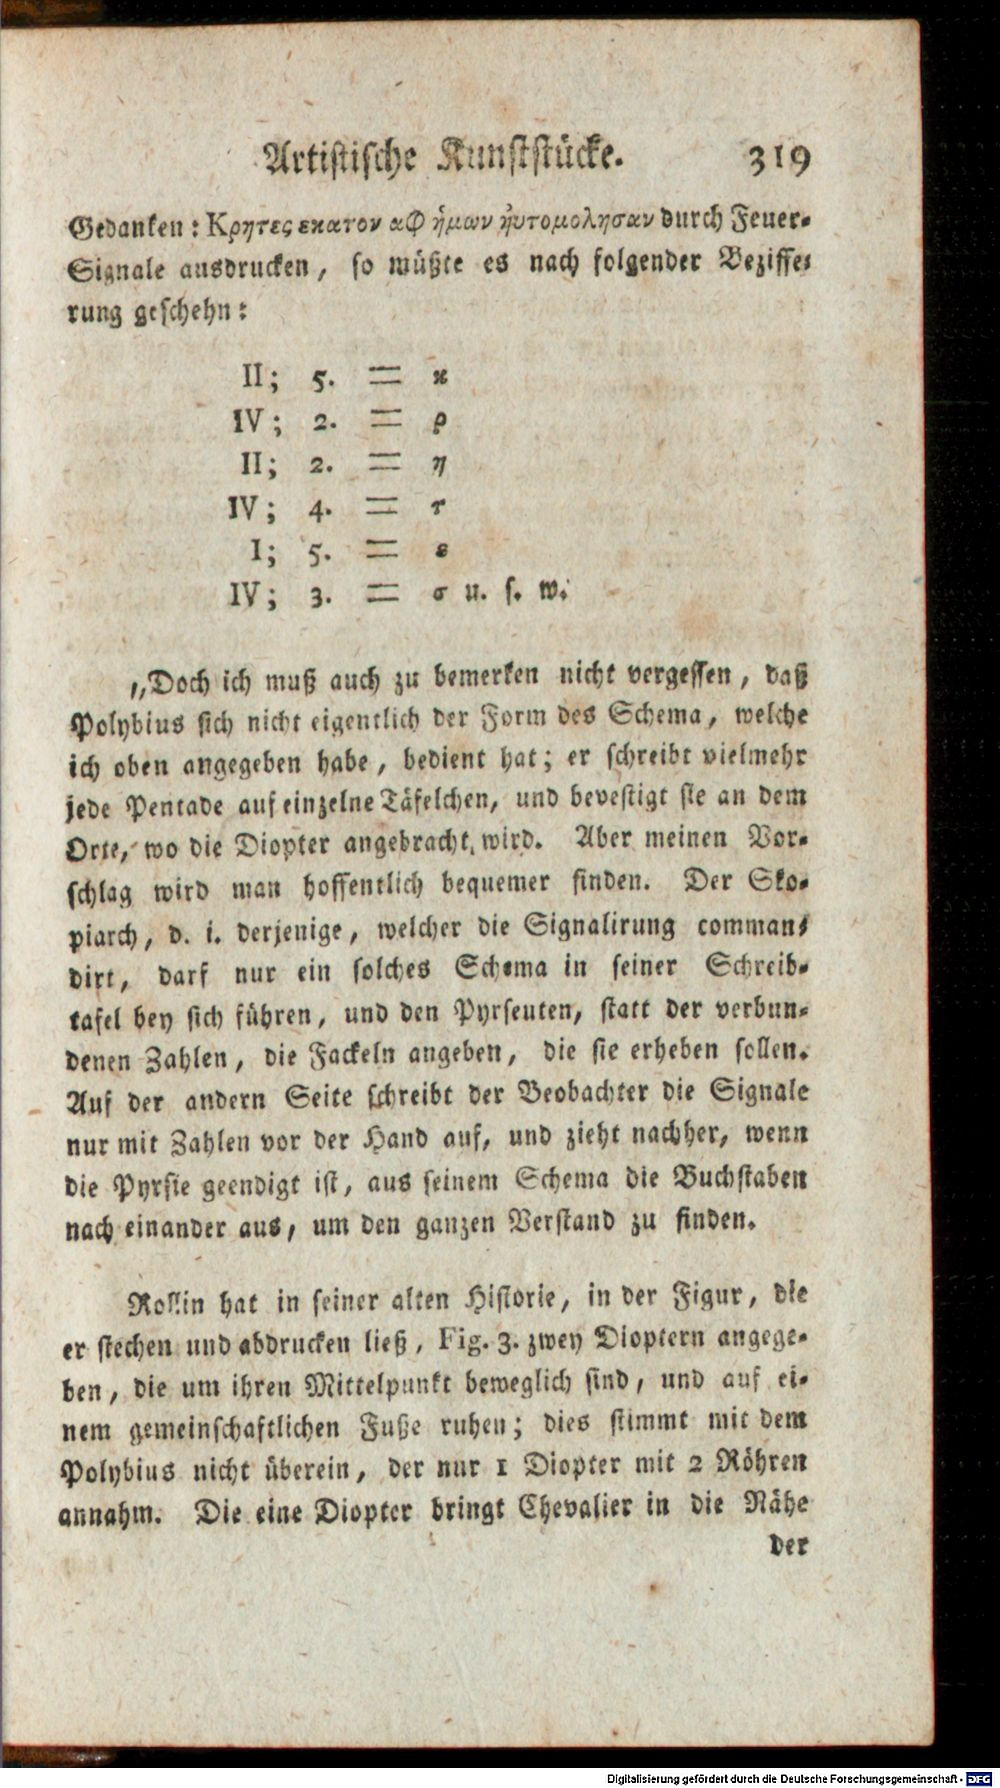 Artistische Kunststücke. 319
Gedanken: Κρητες εκατον αφ ἡμων ἠυτομολησαν durch Feuer-
Signale ausdrucken, so müßte es nach folgender Beziffe-
rung geschehn:
II; 5. = κ
IV; 2. = ρ
II; 2. = η
IV; 4. = τ
I; 5. = ε
IV; 3. = σ u. s. w.
„Doch ich muß auch zu bemerken nicht vergessen, daß
Polybius sich nicht eigentlich der Form des Schema, welche
ich oben angegeben habe, bedient hat; er schreibt vielmehr
jede Pentade auf einzelne Täfelchen, und bevestigt sie an dem
Orte, wo die Diopter angebracht wird. Aber meinen Vor-
schlag wird man hoffentlich bequemer finden. Der Sko-
piarch, d. i. derjenige, welcher die Signalirung comman-
dirt, darf nur ein solches Schema in seiner Schreib-
tafel bey sich führen, und den Pyrseuten, statt der verbun-
denen Zahlen, die Fackeln angeben, die sie erheben sollen.
Auf der andern Seite schreibt der Beobachter die Signale
nur mit Zahlen vor der Hand auf, und zieht nachher, wenn
die Pyrsie geendigt ist, aus seinem Schema die Buchstaben
nach einander aus, um den ganzen Verstand zu finden.
Rollin hat in seiner alten Historie, in der Figur, die
er stechen und abdrucken ließ, Fig. 3. zwey Dioptern angege-
ben, die um ihren Mittelpunkt beweglich sind, und auf ei-
nem gemeinschaftlichen Fuße ruhen; dies stimmt mit dem
Polybius nicht überein, der nur 1 Diopter mit 2 Röhren
annahm. Die eine Diopter bringt Chevalier in die Nähe
der
Digitalisierung gefördert durch die Deutsche Forschungsgemeinschaft - DFG